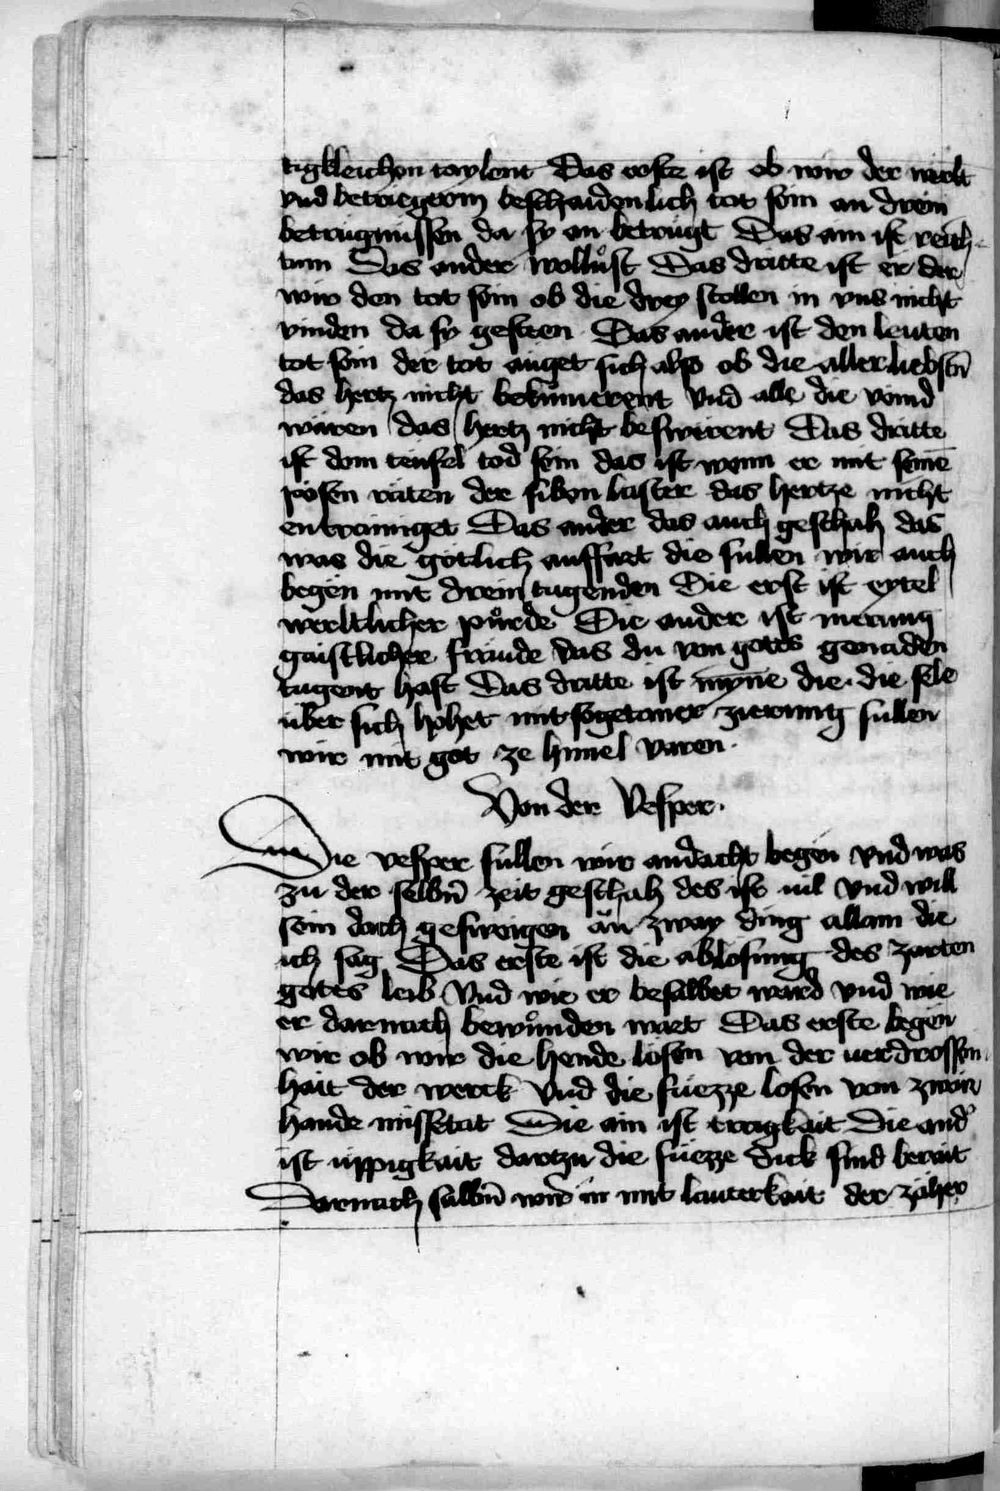 tigkleichen taylent Das erste ist ob wir der werlt
vnd betriegerin beschaidenlich tot sein an drein
betrugnussen da sy an betrugt Das ain ist reich
tum Das ander wollůst Das dritte ist er der
wir den tot sein ob die drey stollen in vns nicht
vinden da sy gesteen Das ander ist den leuten
tot sein der tot auget sich also ob die aller liebstn̄
das hertz nicht bekumerent vnd alle die veind
wären das hertz nicht beswerent Das dritte
ist dem teufel tod sein das ist wenn er mit seinē
pösen räten der siben laster das hertze nicht
entrainiget Das ander das auch geschah das
was die götlich auffart die sullen wir auch
begen mit drein tugenden Die erst ist eytel
werltlicher půrde Die ander ist merung
gaistlicher fräude das du von gotes genaden
tugent hast Das dritte ist myne die die sele
über sich hohet mit sogetaner zierung sullen
wir mit got ze himel varen
Von der Vesper
Die vesper sullen wir andacht begen vnd was
zu der selbn̄ zeit geschah des ist uil vnd will
sein doch gesweigen an zway ding allain die
ich sag Das erste ist die ablosung des zarten
gotes leib Vnd wie er besalbet ward vnd wie
er darnach bewůnden wart Das erste begen
wir ob wir die hende lösen von der uerdrossen
hait der werck vnd die füezze losen von zwair
hande missetat Die ain ist tragkait Die and̕
ist üppigkait dartzu die füezze dick sind berait
Darnach salbn̄ wir in mit lauterkait der zäher